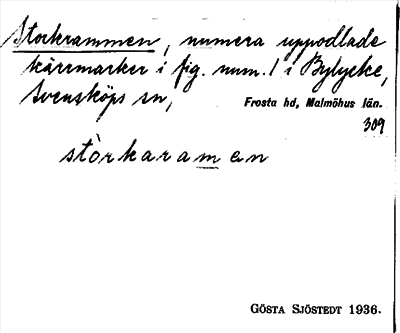 Storkrammen, numera uppodlade
kärrmarker i fig. num. 1 i Bylycke,
Svensköps sn,
Frosta hd, Malmöhus län.
309
stòrkaramen
GÖSTA SJÖSTEDT 1936.